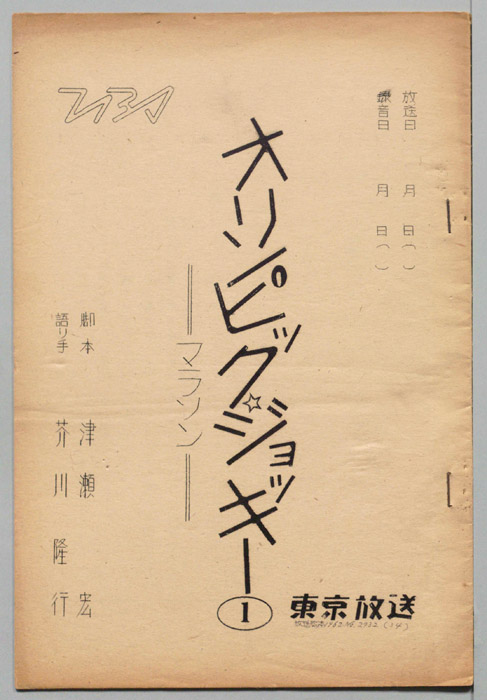 放送日 月 日( )
録音日 月 日( )
オリンピック☆ジョッキー
1
―マラソン―
脚本 津瀬 宏
語り手 芥川 隆行
TBS
東京放送